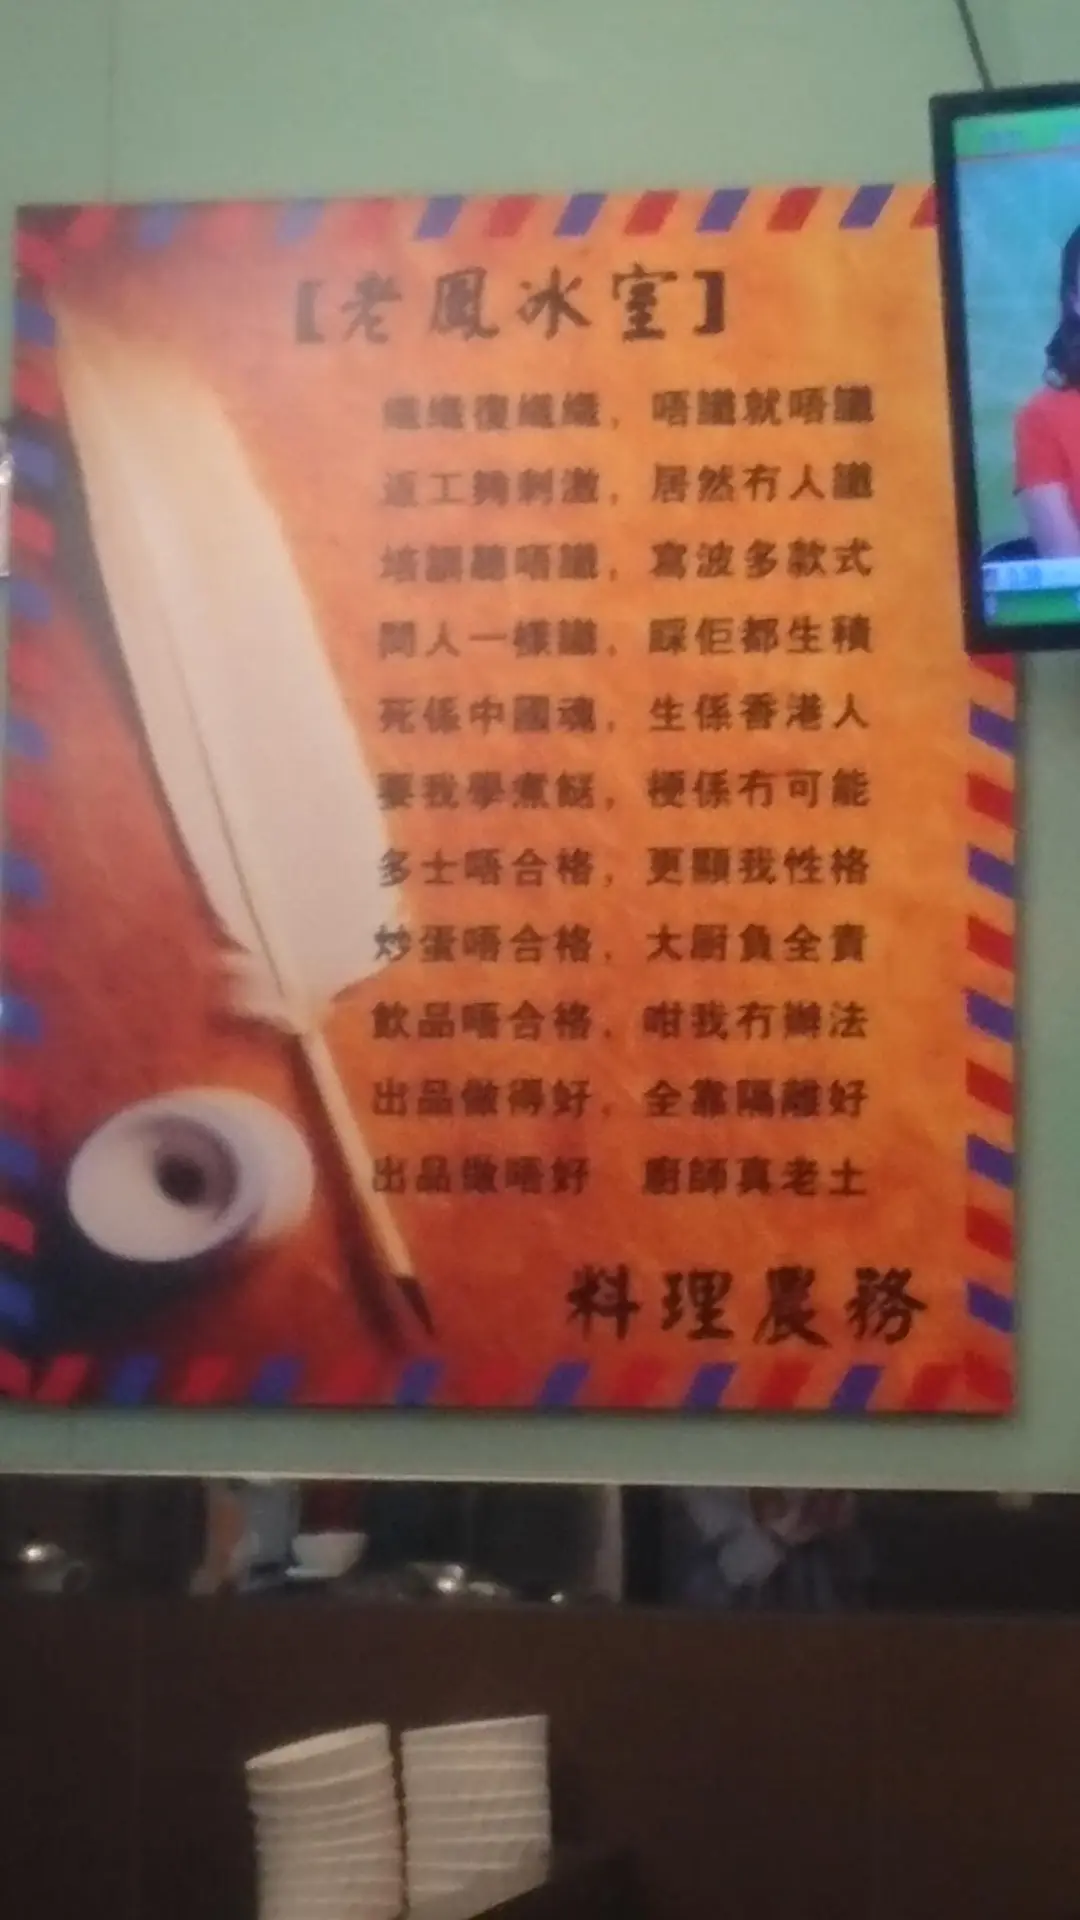 【老鳳冰室】
織織復織織，唔識就唔識
返工夠刺激，居然冇人識
培訓聽唔識，寫波多款式
問人一樣識，睬佢都生積
死係中國魂，生係香港人
要我學煮餸，梗係冇可能
多士唔合格，更顯我性格
炒蛋唔合格，大廚負全責
飲品唔合格，咁我冇辦法
出品做得好，全靠隔離好
出品做唔好 廚師真老土
料理農務